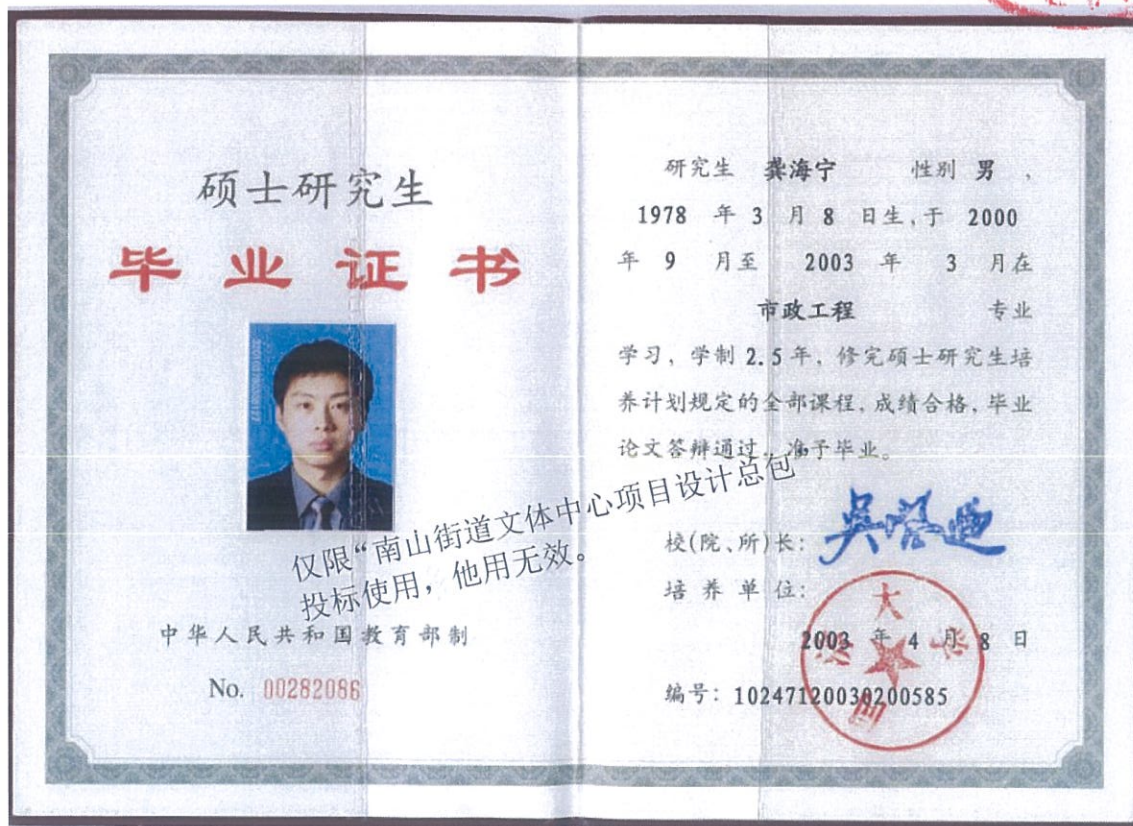 硕士研究生
毕业证书
仅限“南山街道文体中心项目设计总包
投标使用，他用无效。
中华人民共和国教育部制
No. 00282086
研究生 龚海宁 性别 男，
1978 年 3 月 8 日生,于 2000
年 9 月至 2003 年 3 月在
市政工程 专业
学习，学制 2.5 年，修完硕士研究生培
养计划规定的全部课程，成绩合格，毕业
论文答辩通过，准予毕业。
校(院、所)长：
培养单位：
同济大学
2003 年 4 月 8 日
编号：10247120030200585